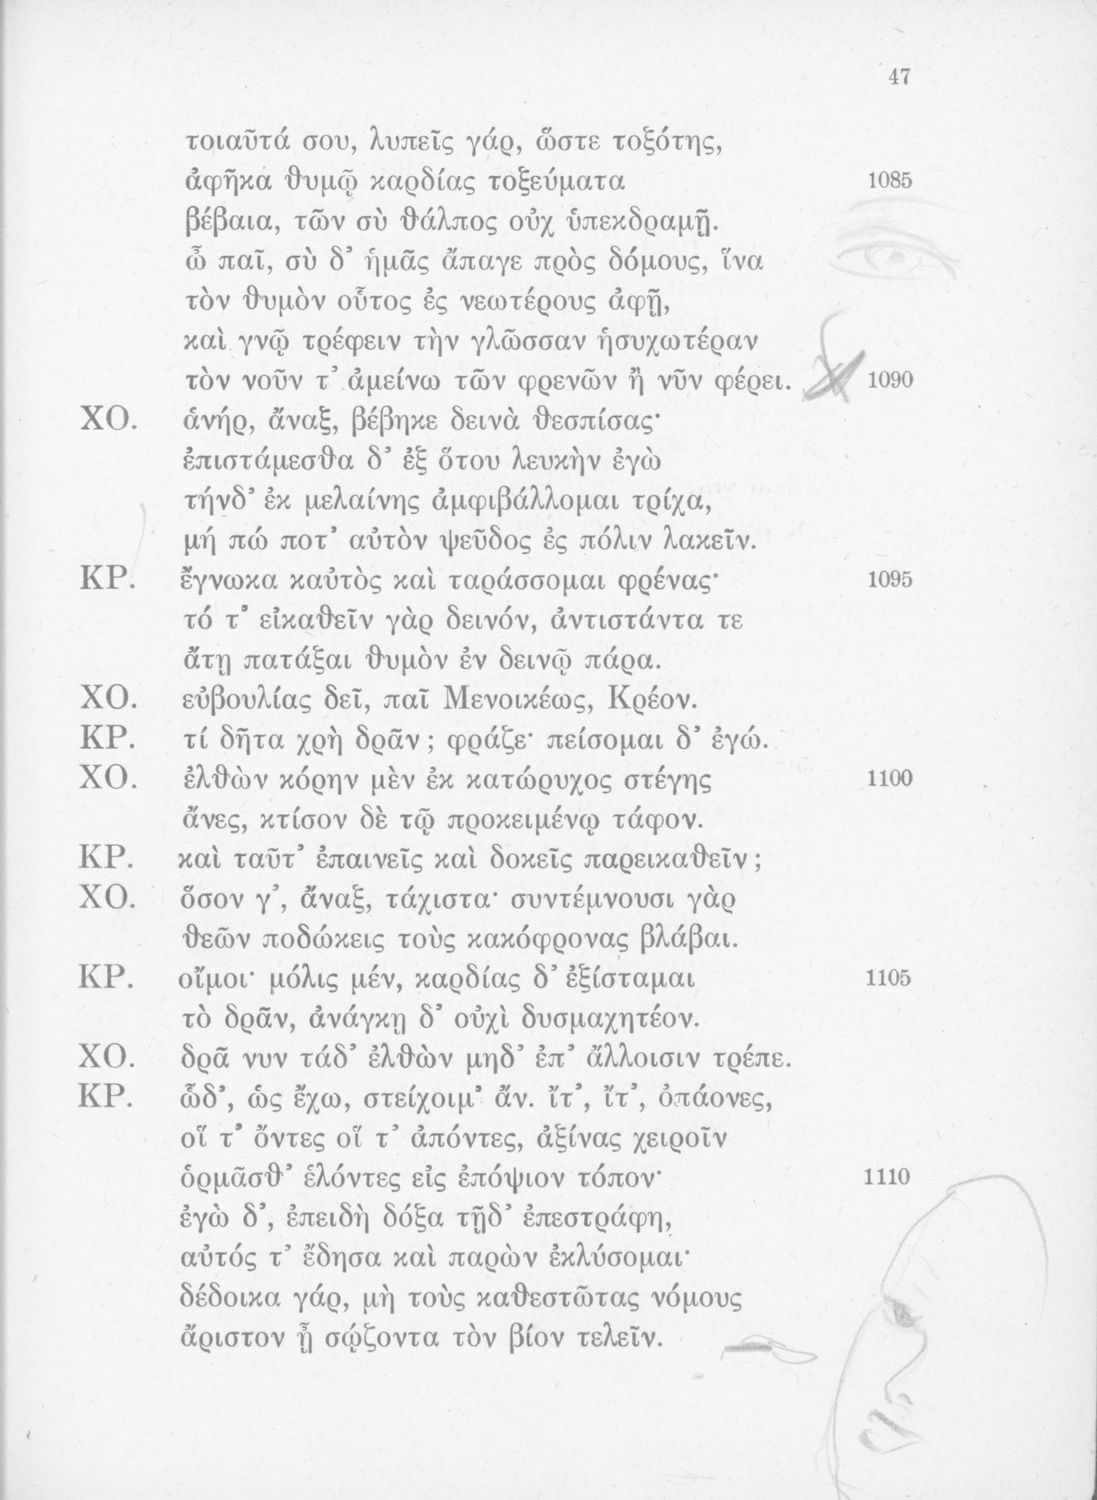 47
τοιαῦτά σου, λυπεῖς γάρ, ὥστε τοξότης,
ἀφῆκα θυμῷ καρδίας τοξεύματα 1085
βέβαια, τῶν σὺ θάλπος οὐχ ὑπεκδραμῇ.
ὦ παῖ, σὺ δ’ ἡμᾶς ἄπαγε πρὸς δόμους, ἵνα
τὸν θυμὸν οὗτος ἐς νεωτέρους ἀφῇ,
καὶ γνῷ τρέφειν τὴν γλῶσσαν ἡσυχωτέραν
τὸν νοῦν τ’ ἀμείνω τῶν φρενῶν ἢ νῦν φέρει. 1090
ΧΟ. ἁνήρ, ἄναξ, βέβηκε δεινὰ θεσπίσας·
ἐπιστάμεσθα δ’ ἐξ ὅτου λευκὴν ἐγὼ
τήνδ’ ἐκ μελαίνης ἀμφιβάλλομαι τρίχα,
μή πώ ποτ’ αὐτὸν ψεῦδος ἐς πόλιν λακεῖν.
ΚΡ. ἔγνωκα καὐτὸς καὶ ταράσσομαι φρένας· 1095
τό τ’ εἰκαθεῖν γὰρ δεινόν, ἀντιστάντα τε
ἄτῃ πατάξαι θυμὸν ἐν δεινῷ πάρα.
ΧΟ. εὐβουλίας δεῖ, παῖ Μενοικέως, Κρέον.
ΚΡ. τί δῆτα χρὴ δρᾶν; φράζε· πείσομαι δ’ ἐγώ.
ΧΟ. ἐλθὼν κόρην μὲν ἐκ κατώρυχος στέγης 1100
ἄνες, κτίσον δὲ τῷ προκειμένῳ τάφον.
ΚΡ. καὶ ταῦτ’ ἐπαινεῖς καὶ δοκεῖς παρεικαθεῖν;
ΧΟ. ὅσον γ’, ἄναξ, τάχιστα· συντέμνουσι γὰρ
θεῶν ποδώκεις τοὺς κακόφρονας βλάβαι.
ΚΡ. οἴμοι· μόλις μέν, καρδίας δ’ ἐξίσταμαι 1105
τὸ δρᾶν, ἀνάγκῃ δ’ οὐχὶ δυσμαχητέον.
ΧΟ. δρᾶ νυν τάδ’ ἐλθὼν μηδ’ ἐπ’ ἄλλοισιν τρέπε.
ΚΡ. ὧδ’, ὡς ἔχω, στείχοιμ’ ἄν. ἴτ’, ἴτ’, ὀπάονες,
οἵ τ’ ὄντες οἵ τ’ ἀπόντες, ἀξίνας χεροῖν
ὁρμᾶσθ’ ἑλόντες εἰς ἐπόψιον τόπον· 1110
ἐγὼ δ’, ἐπειδὴ δόξα τῇδ’ ἐπεστράφη,
αὐτός τ’ ἔδησα καὶ παρὼν ἐκλύσομαι·
δέδοικα γάρ, μὴ τοὺς καθεστῶτας νόμους
ἄριστον ᾖ σῴζοντα τὸν βίον τελεῖν.